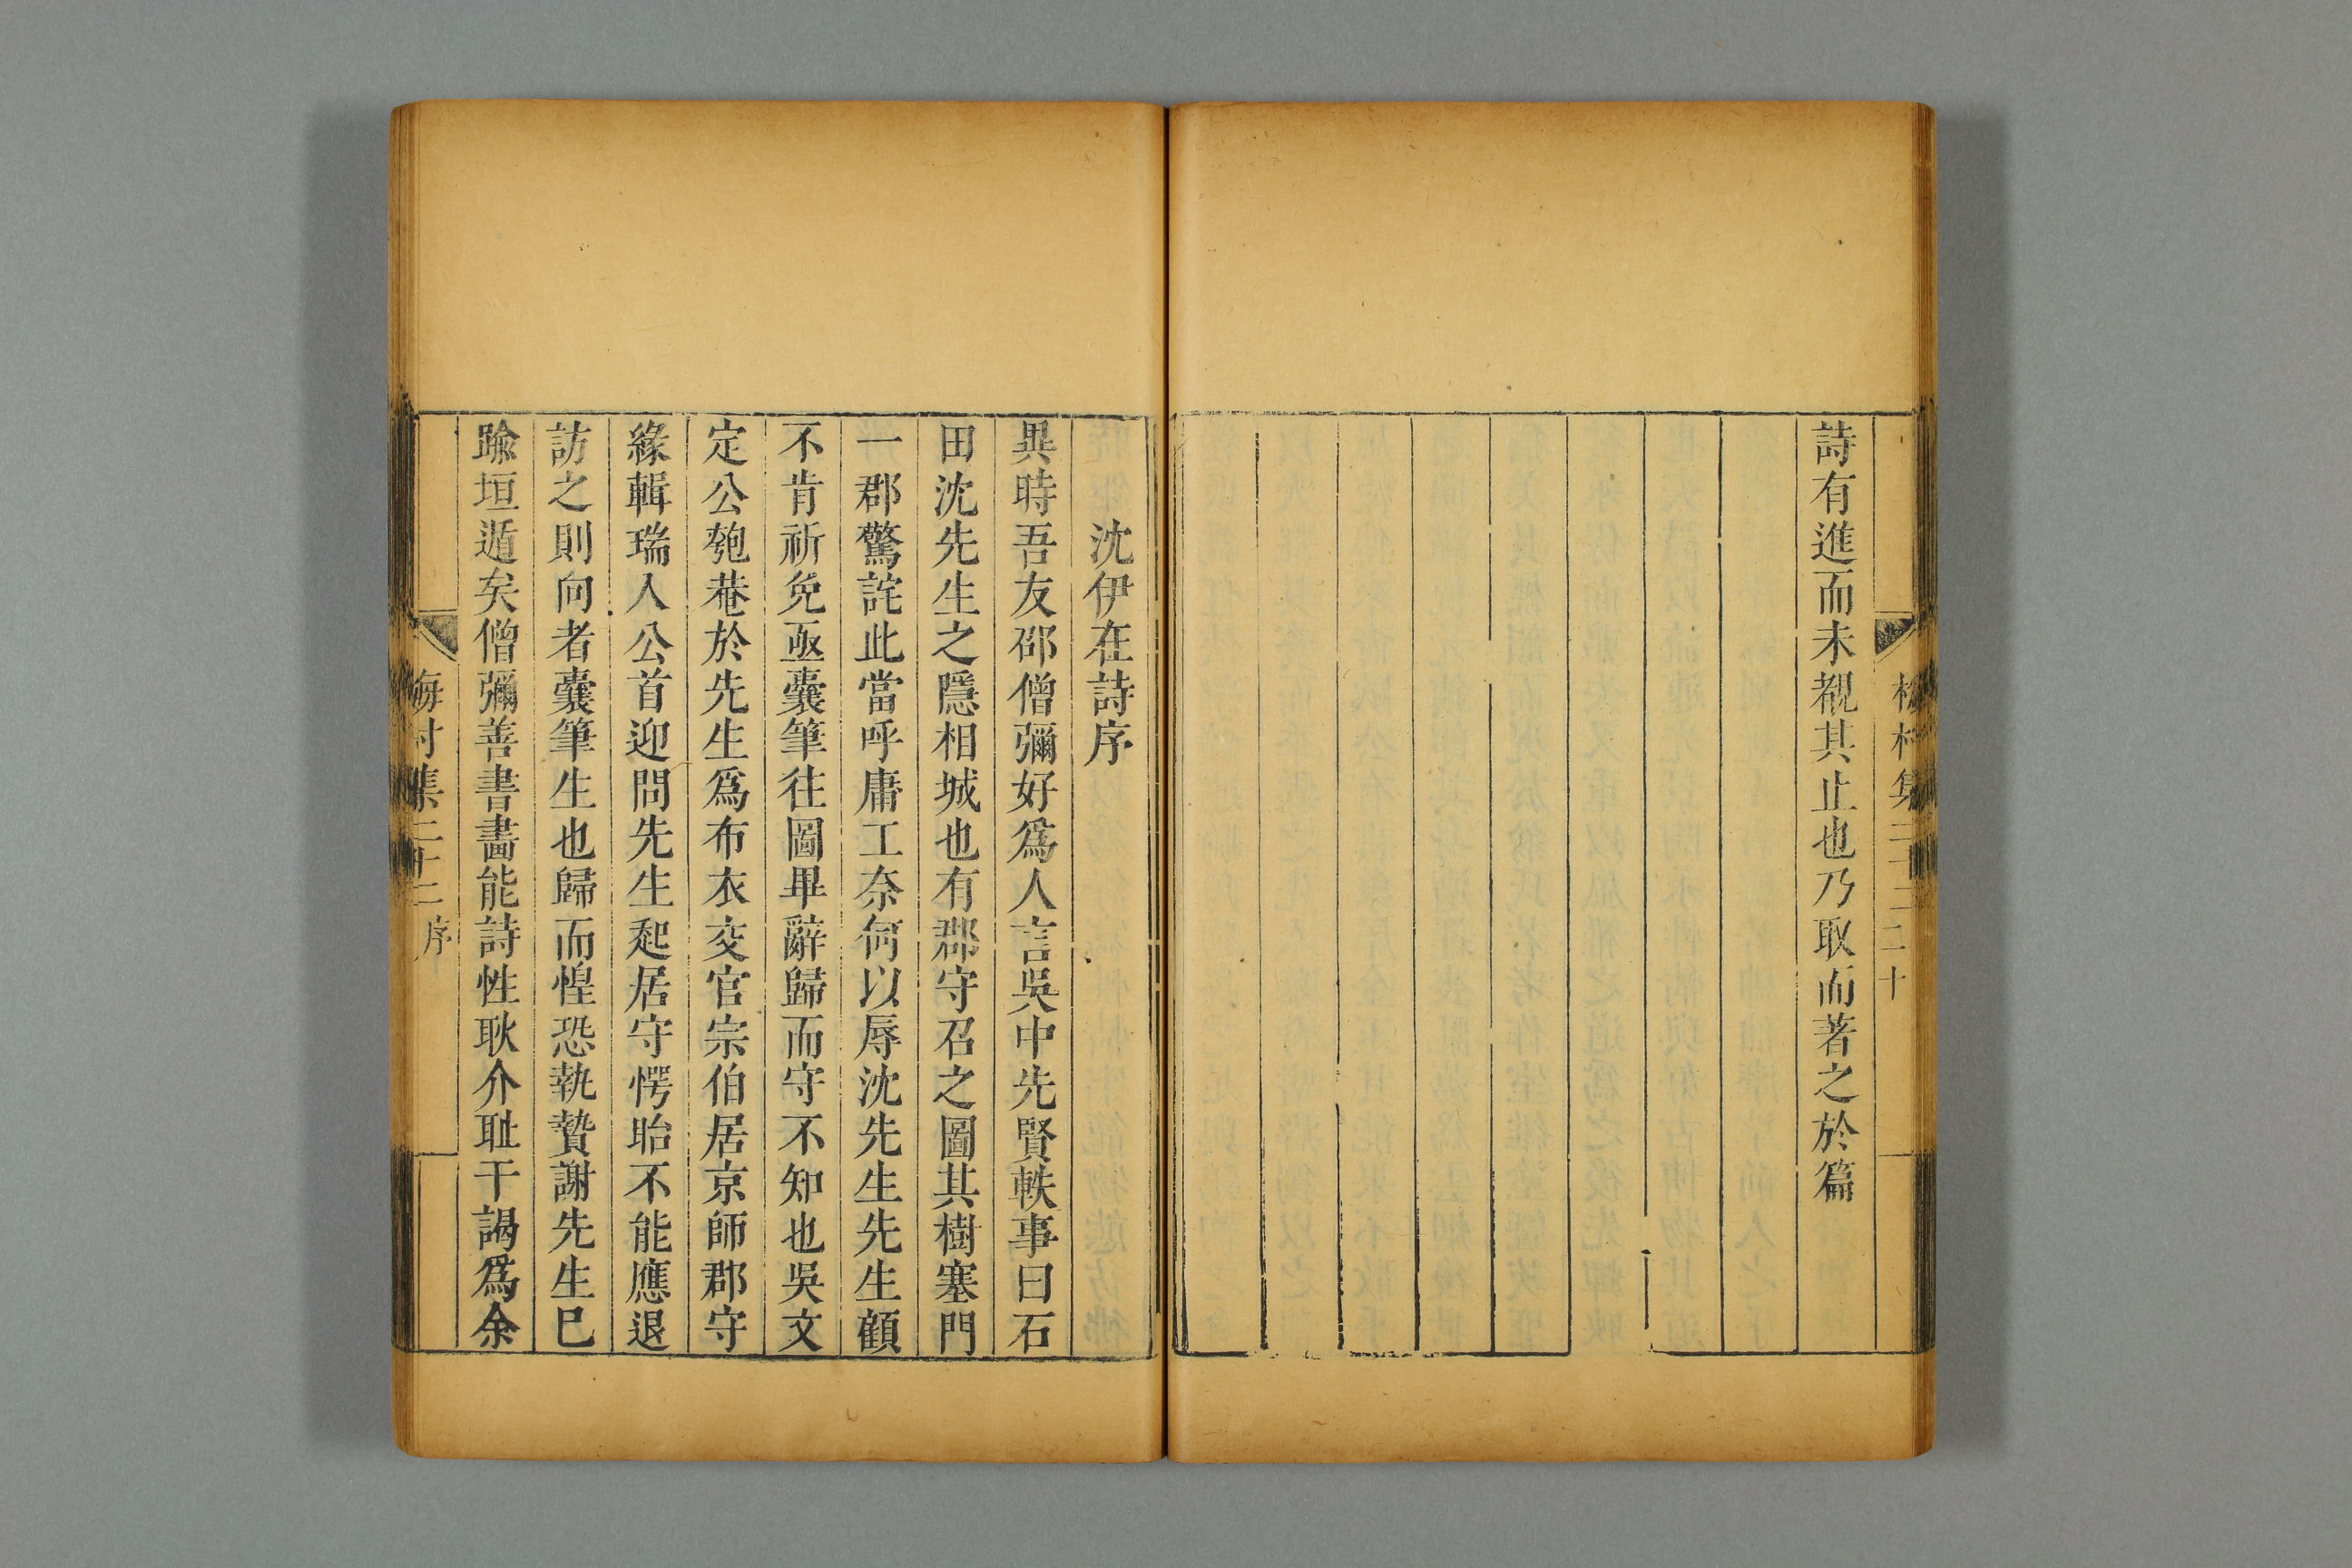 詩有進而未覩其止也乃取而著之於篇
沈伊在詩序
異時吾友邵僧彌好爲人言吳中先賢軼事曰石
田沈先生之隱相城也有郡守召之圖其樹塞門
一郡驚詫此當呼庸工奈何以辱沈先生先生顧
不肯祈免亟囊筆往圖畢辭歸而守不知也吳文
定公匏菴於先生爲布衣交官宗伯居京師郡守
緣輯瑞入公首迎問先生起居守愕眙不能應退
訪之則向者囊筆生也歸而惶恐執贄謝先生已
踰垣遁矣僧彌善書畵能詩性耿介耻干謁爲余
梅村集二十二 序